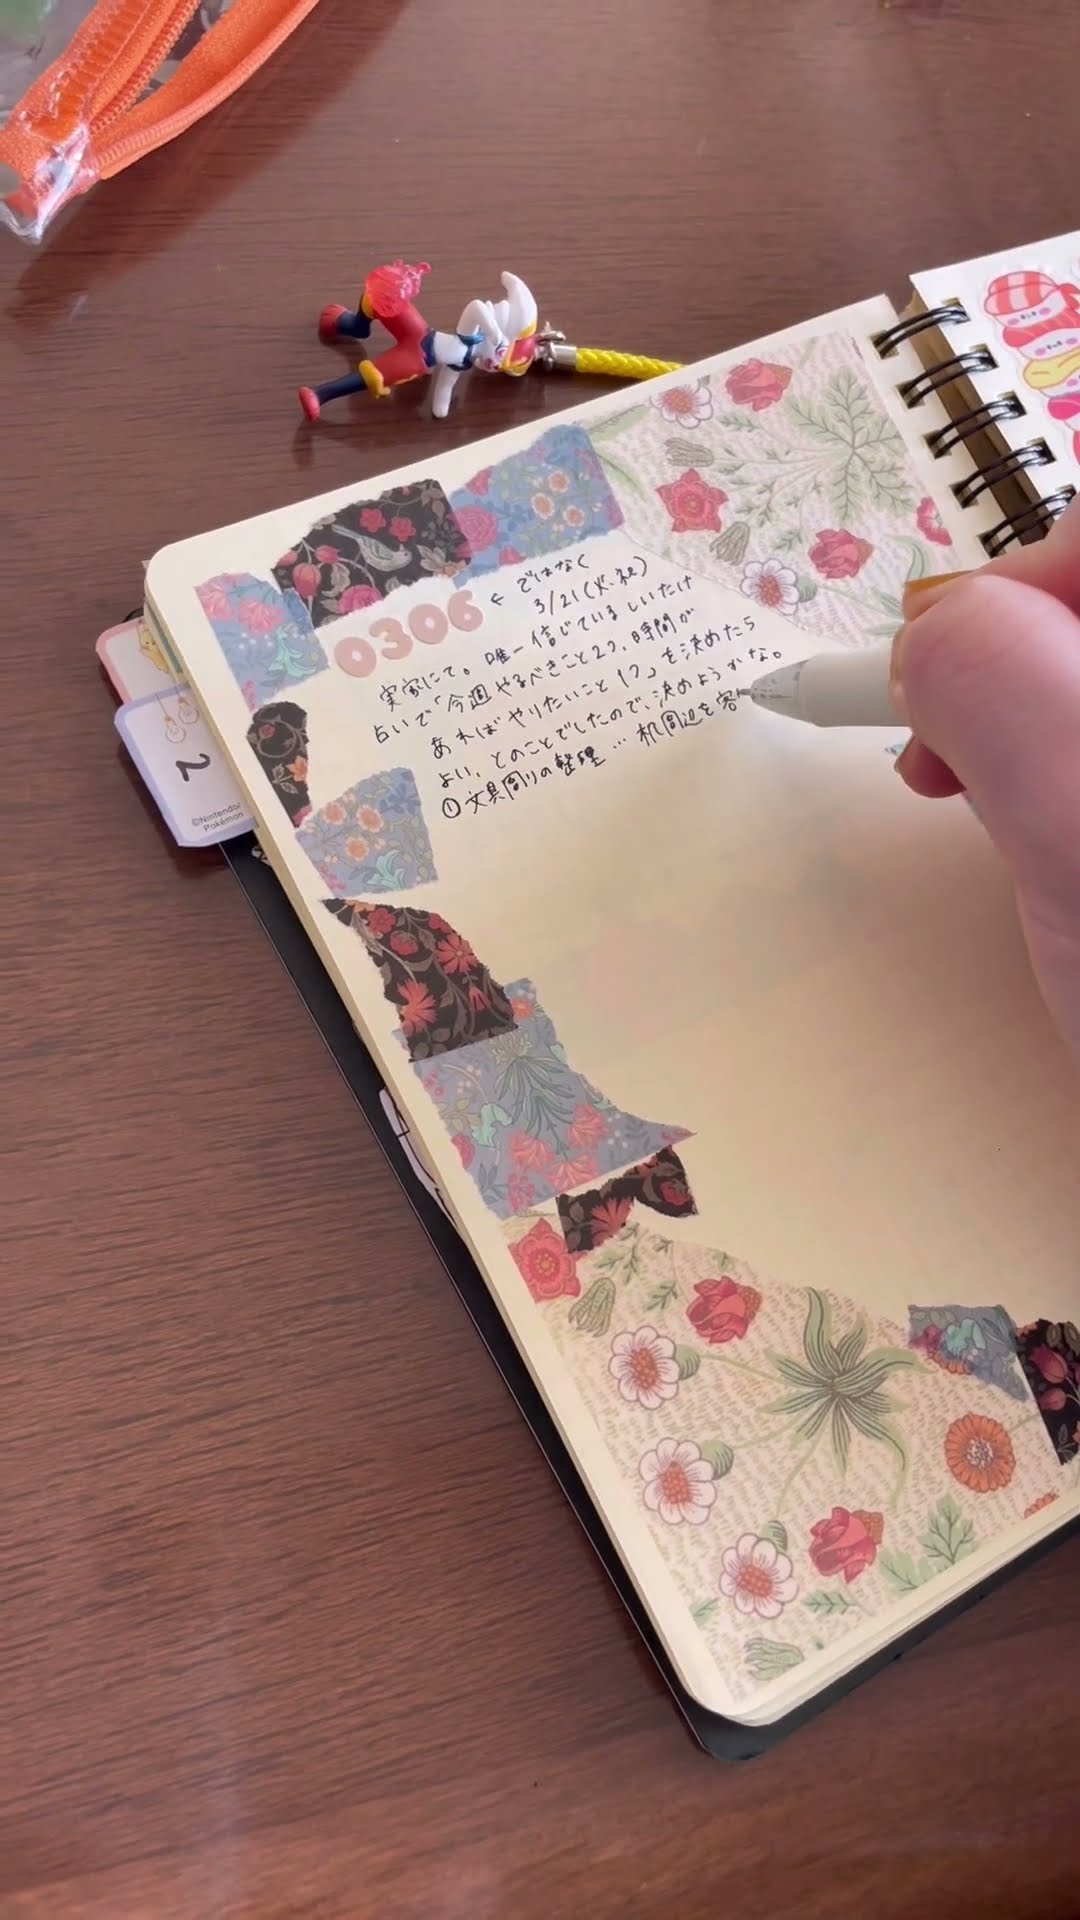 0306 ← ではなく
3/21(火、祝)
実家にて。唯一信じているしいたけ
占いで「今週やるべきこと2つ、時間が
あればやりたいこと1つ」を決めたら
よい、とのことでしたので、決めようかな。
① 文具周りの整理 … 机周辺を客
2
©Nintendo/
Pokémon